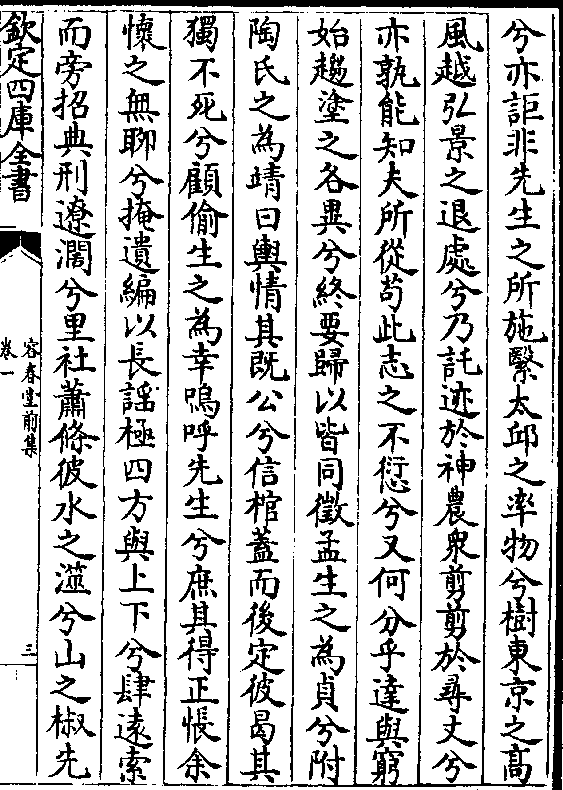 兮亦詎非先生之所施繄太邱之率物兮樹東京之髙
風越弘景之退處兮乃託迹於神農衆剪剪於尋丈兮
亦孰能知夫所從苟此志之不愆兮又何分乎達與窮
始趨塗之各異兮終要歸以皆同徵孟生之為貞兮附
陶氏之為靖曰輿情其既公兮信棺蓋而後定彼曷其
獨不死兮顧偷生之為幸嗚呼先生兮庶其得正悵余
懷之無聊兮掩遺編以長謡極四方與上下兮肆逺索
而旁招典刑遼濶兮里社蕭條彼水之澨兮山之椒先
欽定四庫全書
容春堂前集
卷一
三